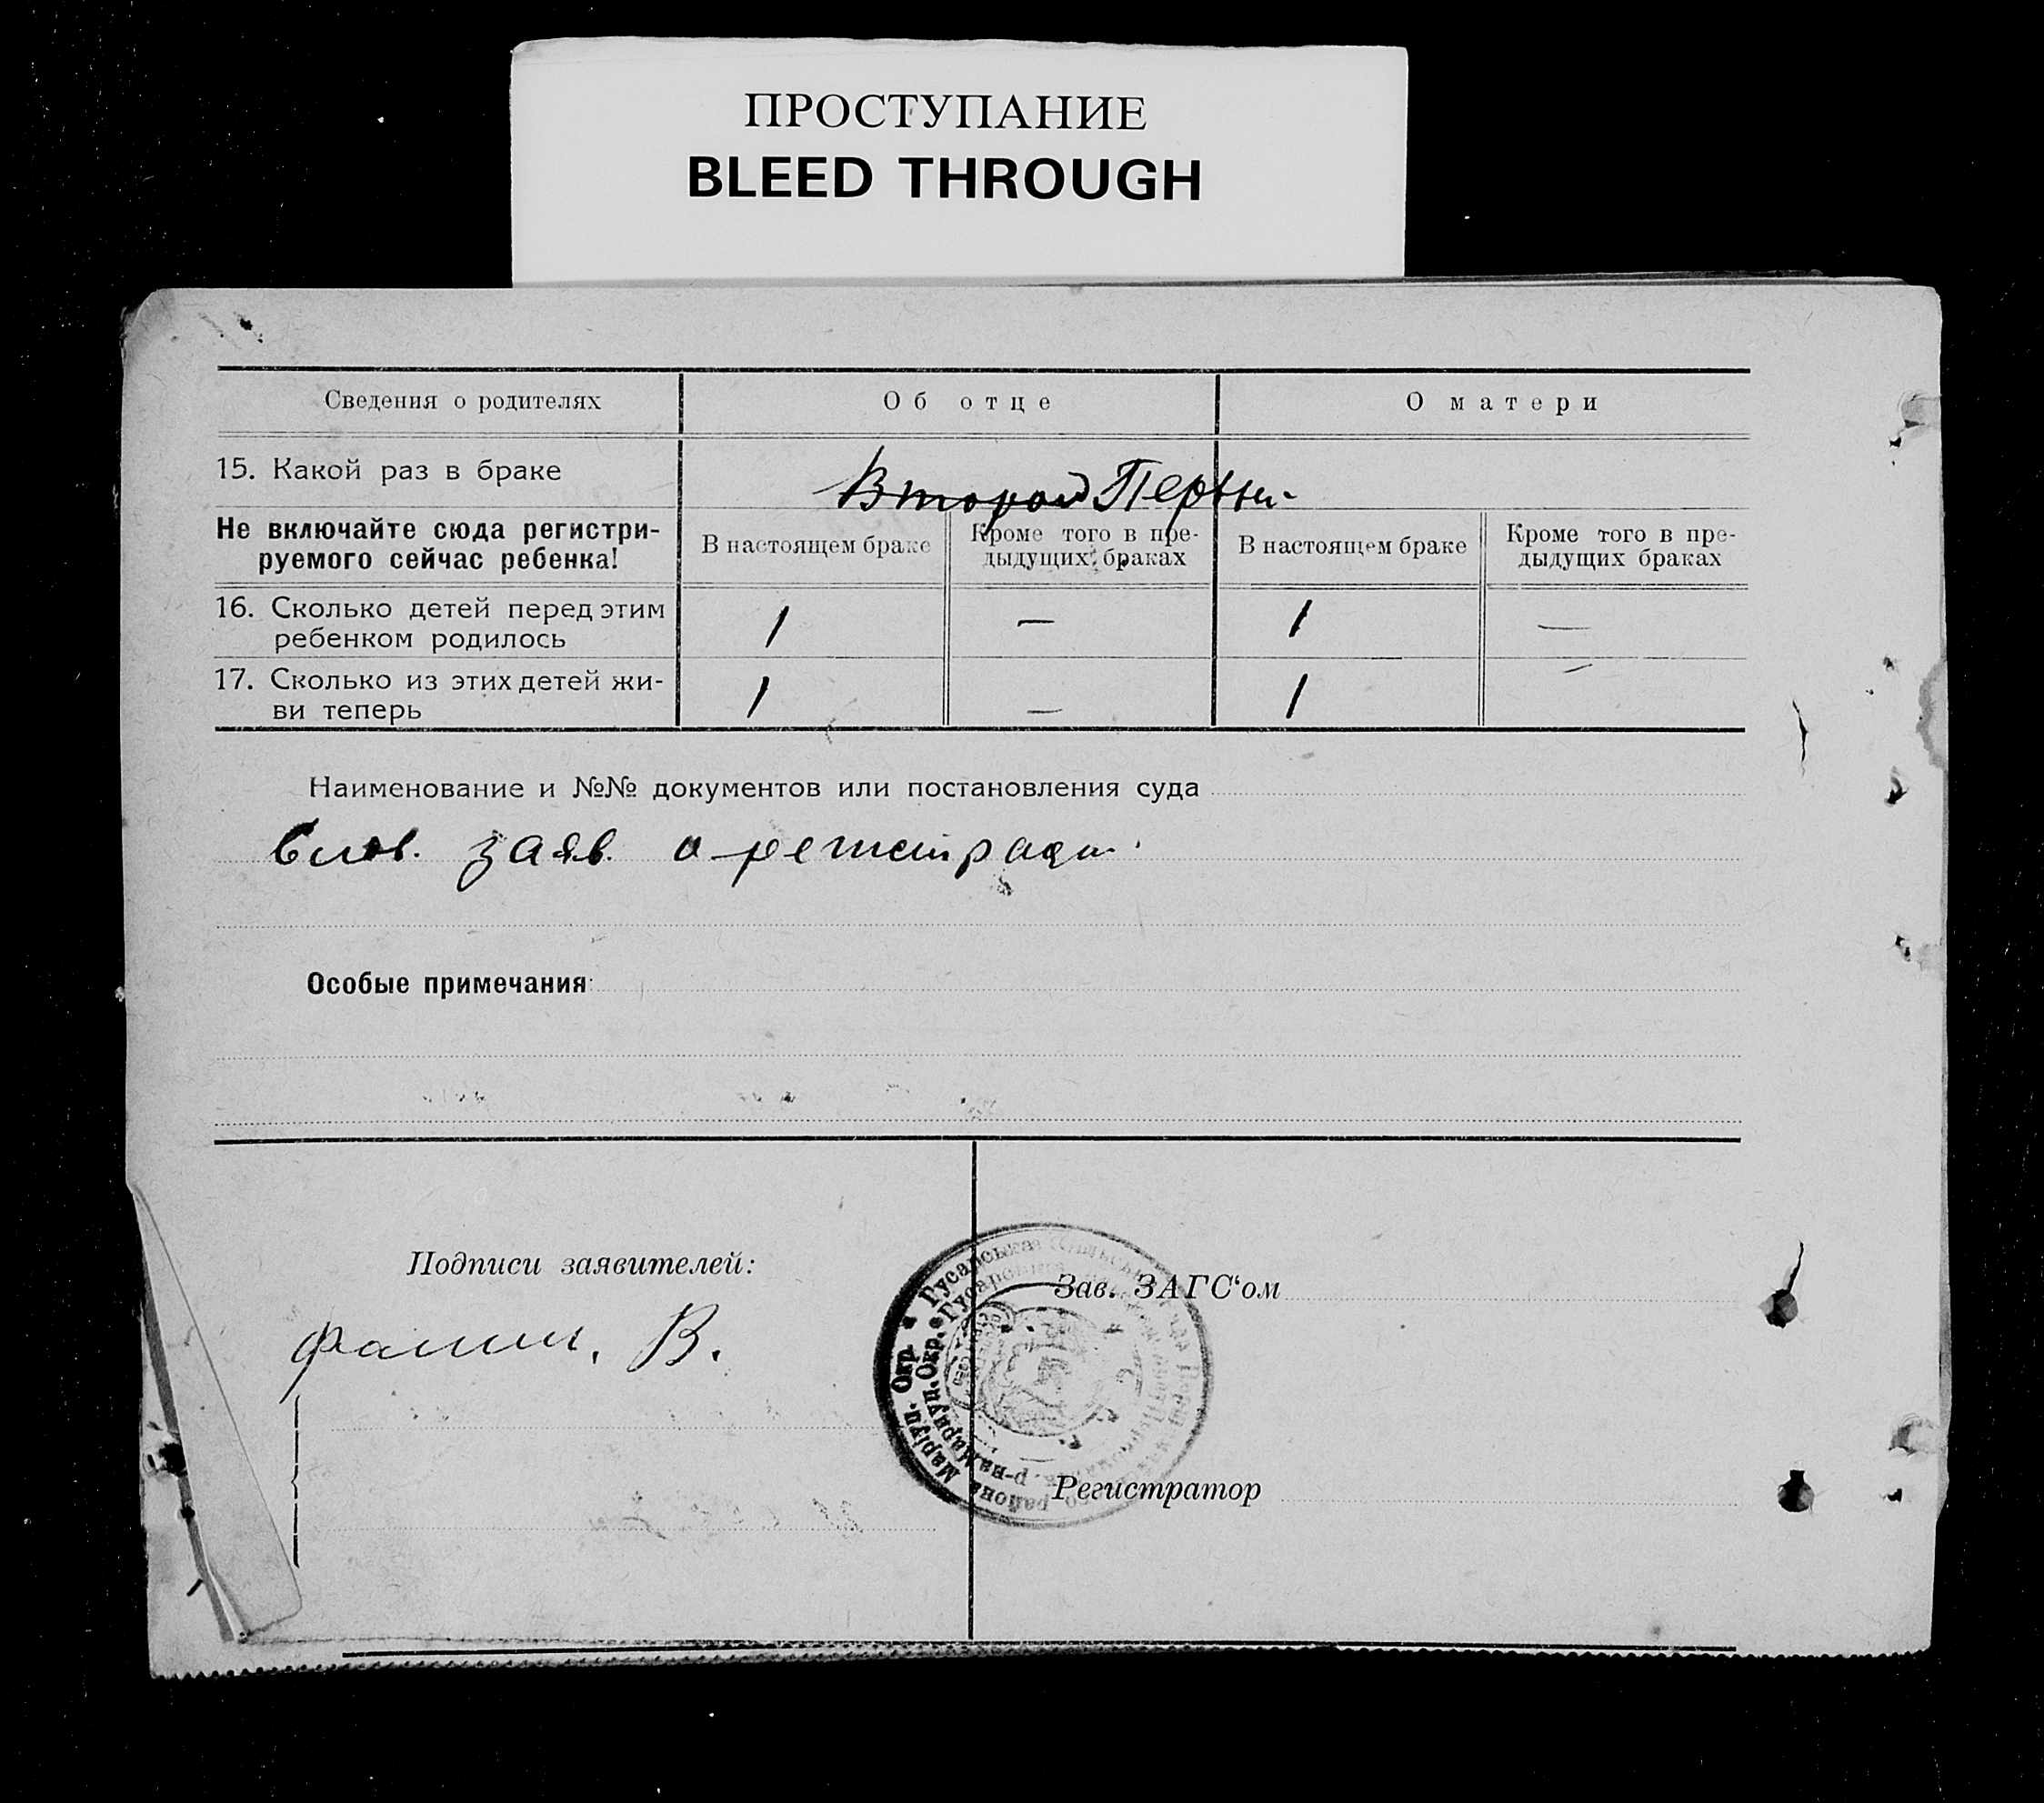 ПРОСТУПАНИЕ
BLEED THROUGH
Сведения о родителях
Об отце
О матери
15. Какой раз в браке
Второй Первы-
Не включайте сюда регистри-
руемого сейчас ребенка!
В настоящем браке
Кроме того в пре-
дыдущих браках
В настоящем браке
Кроме того в пре-
дыдущих браках
16. Сколько детей перед этим
ребенком родилось
1 — 1 —
17. Сколько из этих детей жи-
ви теперь
1 — 1 —
Наименование и №№ документов или постановления суда
заяв. о регистрации.
Особые примечания
Подписи заявителей:
В.
Зав. ЗАГС‘ом
Регистратор
Гусарська
района Маріуп. Окр.
р-на Мариуп. Окр.